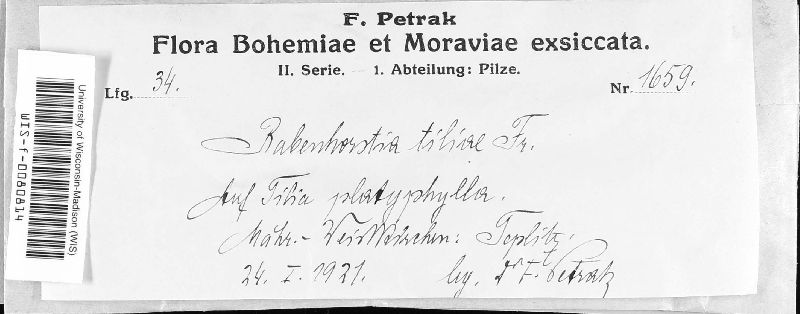 F. Petrak
Flora Bohemiae et Moraviae exsiccata.
II. Serie. — 1. Abteilung: Pilze.
Lfg. 34.
Nr. 1659.
Rabenhorstia tiliae Fr.
Auf Tilia platyphylla.
Mähr.-Weisskirchen: Teplitz.
24. I. 1921. leg. Dr F. Petrak
University of Wisconsin-Madison (WIS)
WIS-f-0080814